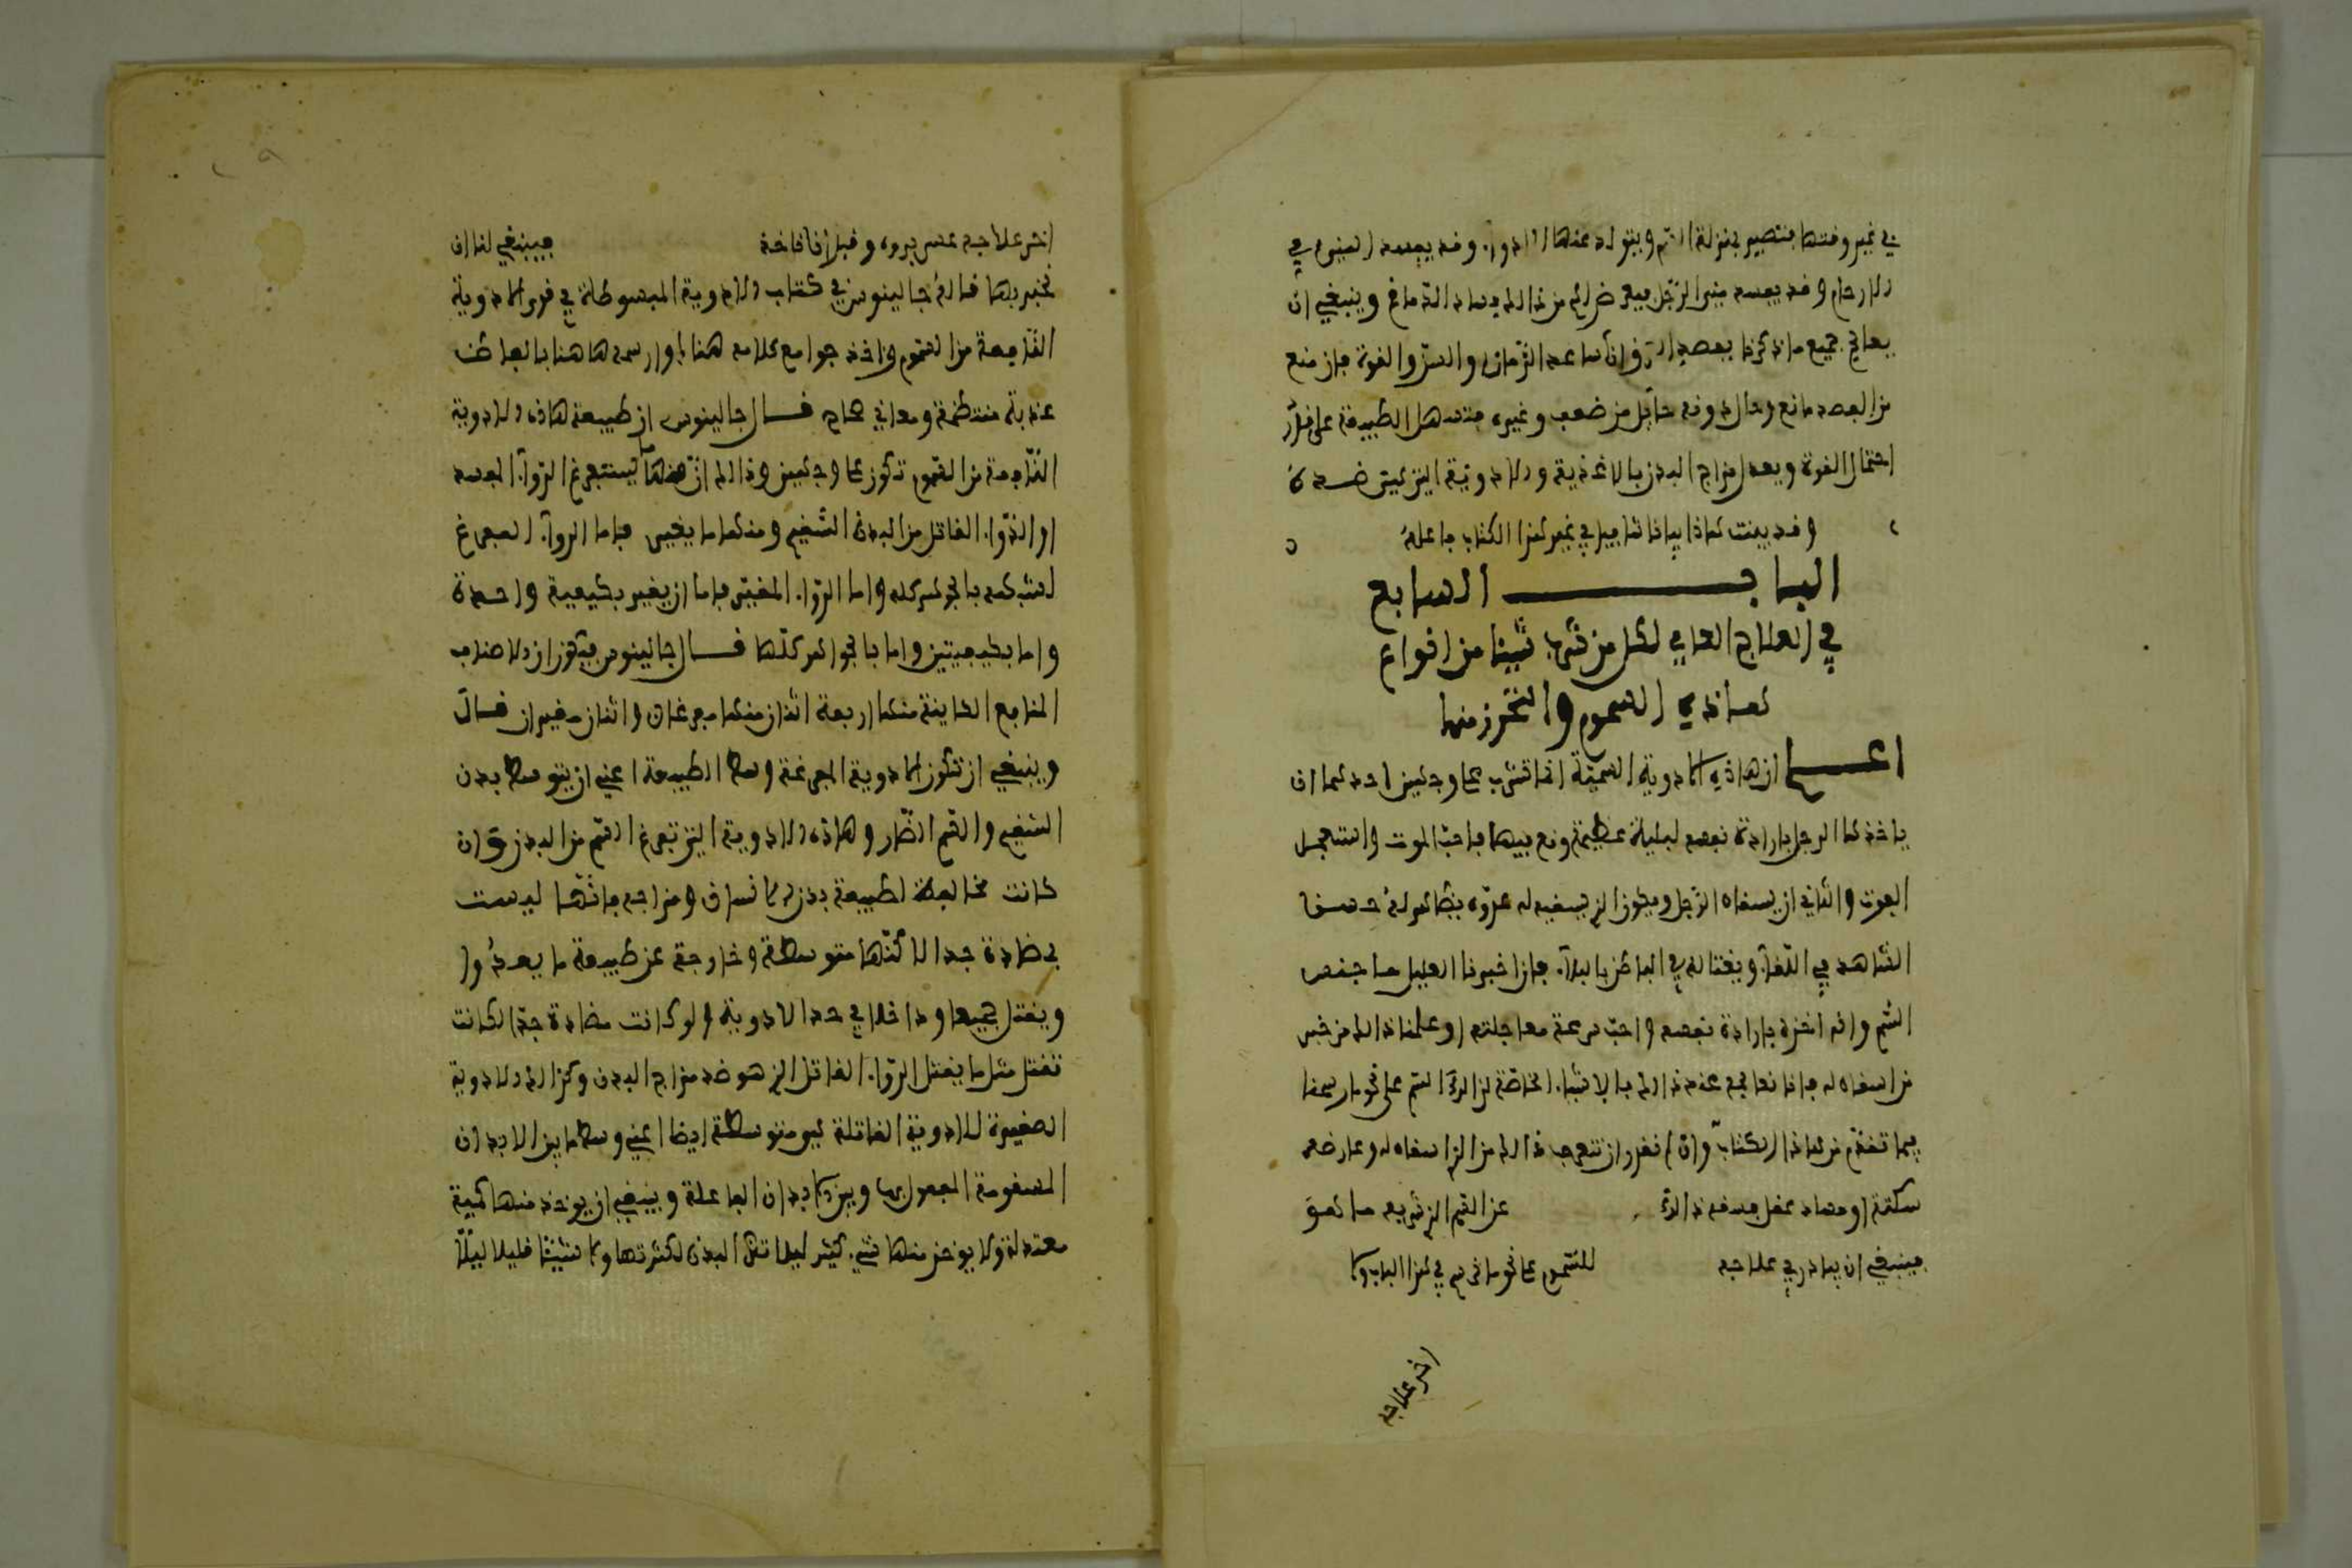 في غير وقتها فتصير بمنزلة السم ويتولد عنها الادواء وقد يفسد المني في
الارحام وقد يفسد مني الرجل فيعرض له من ذالك فساد الدماغ وينبغي ان
يعالج جميع ما ذكرنا بفصد ان ساعد الزمان والسن والقوة فان منع
من الفصد مانع وحال دونه حائل من ضعف وغيره فتسهل الطبيعة على قدر
احتمال القوة ويعدل مزاج البدن بالاغذية والادوية التي
وقد بينت هاذا بيانا شافيا في غير هذا الكتاب فاعلمه
الباب السابع
في العلاج العامي لكل من شرب شيئا من انواع
هاذه السموم والتحرز منها
اعلم ان هاذه الادوية السمية انما تشرب على وجهين احدهما ان
ياخذها الرجل بارادة نفسه لبلية عظيمة وقع فيها فاحب الموت واستعجل
الفوت والثاني ان يسقاه الرجل ويكون الذي يسقيه له عدوه يظاهر له حسنا
الشاهد في اللقاء ويغتاله في الباطن بالبلاء فان اخبرنا العليل
السم وانه اخذه بارادة نفسه واحب سرعة معاجلته او علمنا ذالك من خبر
من اسقاه له فانا نعالجه عند ذالك بالاشياء الخاصة لذالك السم على نحو ما رسمنا
فيما تقدم من هاذا الكتاب وان لم نقدر ان نتعرف ذالك من الذي اسقاه له وعارضه
سكتة او فساد عقل فمنعه ذالك عن السم الذي شربه ما هو
فينبغي ان يبادر في علاجه للسموم على نحو ما نرسم في هذا الباب ولا
اخر علاجه
اخر علاجه عسر بروه وقبل ان ناخذ فينبغي لنا ان
نخبر بما قاله جالينوس في كتاب الادوية المبسوطة في قوى الادوية
النافعة من السموم وناخذ جوامع كلامه هنا وارسمه هاهنا بالفاظ
عذبة منتظمة ومعاني قال جالينوس ان طبيعة هاذه الادوية
النافعة من السموم تكون على وجهين وذالك ان منها ما يستفرغ الدواء المفسد
او الدواء القاتل من البدن السقيم ومنها ما يغير فاما الدواء المفرغ
بالجوهر كله واما الدواء المغير فاما ان يغير بكيفية واحدة
واما بكيفيتين واما بالجواهر كلها قال جالينوس فتكون الاصناف
المنافع الكاينة منها اربعة اثنان منها مفرغان واثنان مغيران قال
وينبغي ان تكون الادوية المفرغة وسط الطبيعة اعني ان يتوسط بدن
السقيم والسم الضار وهاذه الادوية التي تفرغ السم من البدن وان
كانت مخالفة لطبيعة بدن الانسان ومزاجه فانها ليست
بضادة جدا لاكنها متوسطة وخارجة عن طبيعة ما يغذوا
ويقتل جميعا وداخلا في حد الادوية ولو كانت مضادة جدا لكانت
تقتل مثل ما يقتل الدواء القاتل الذي هو ضد مزاج البدن وكذالك الادوية
المغيرة للادوية القاتلة هي متوسطة ايضا اعني وسطا بين الابدان
المسقومة المفعول بها وبين الابدان الفاعلة وينبغي ان يوخذ منها كمية
معتدلة ولا يوخذ منها شي كثير ليلا تنكا البدن لكثرتها ولا شيئا قليلا ليلا